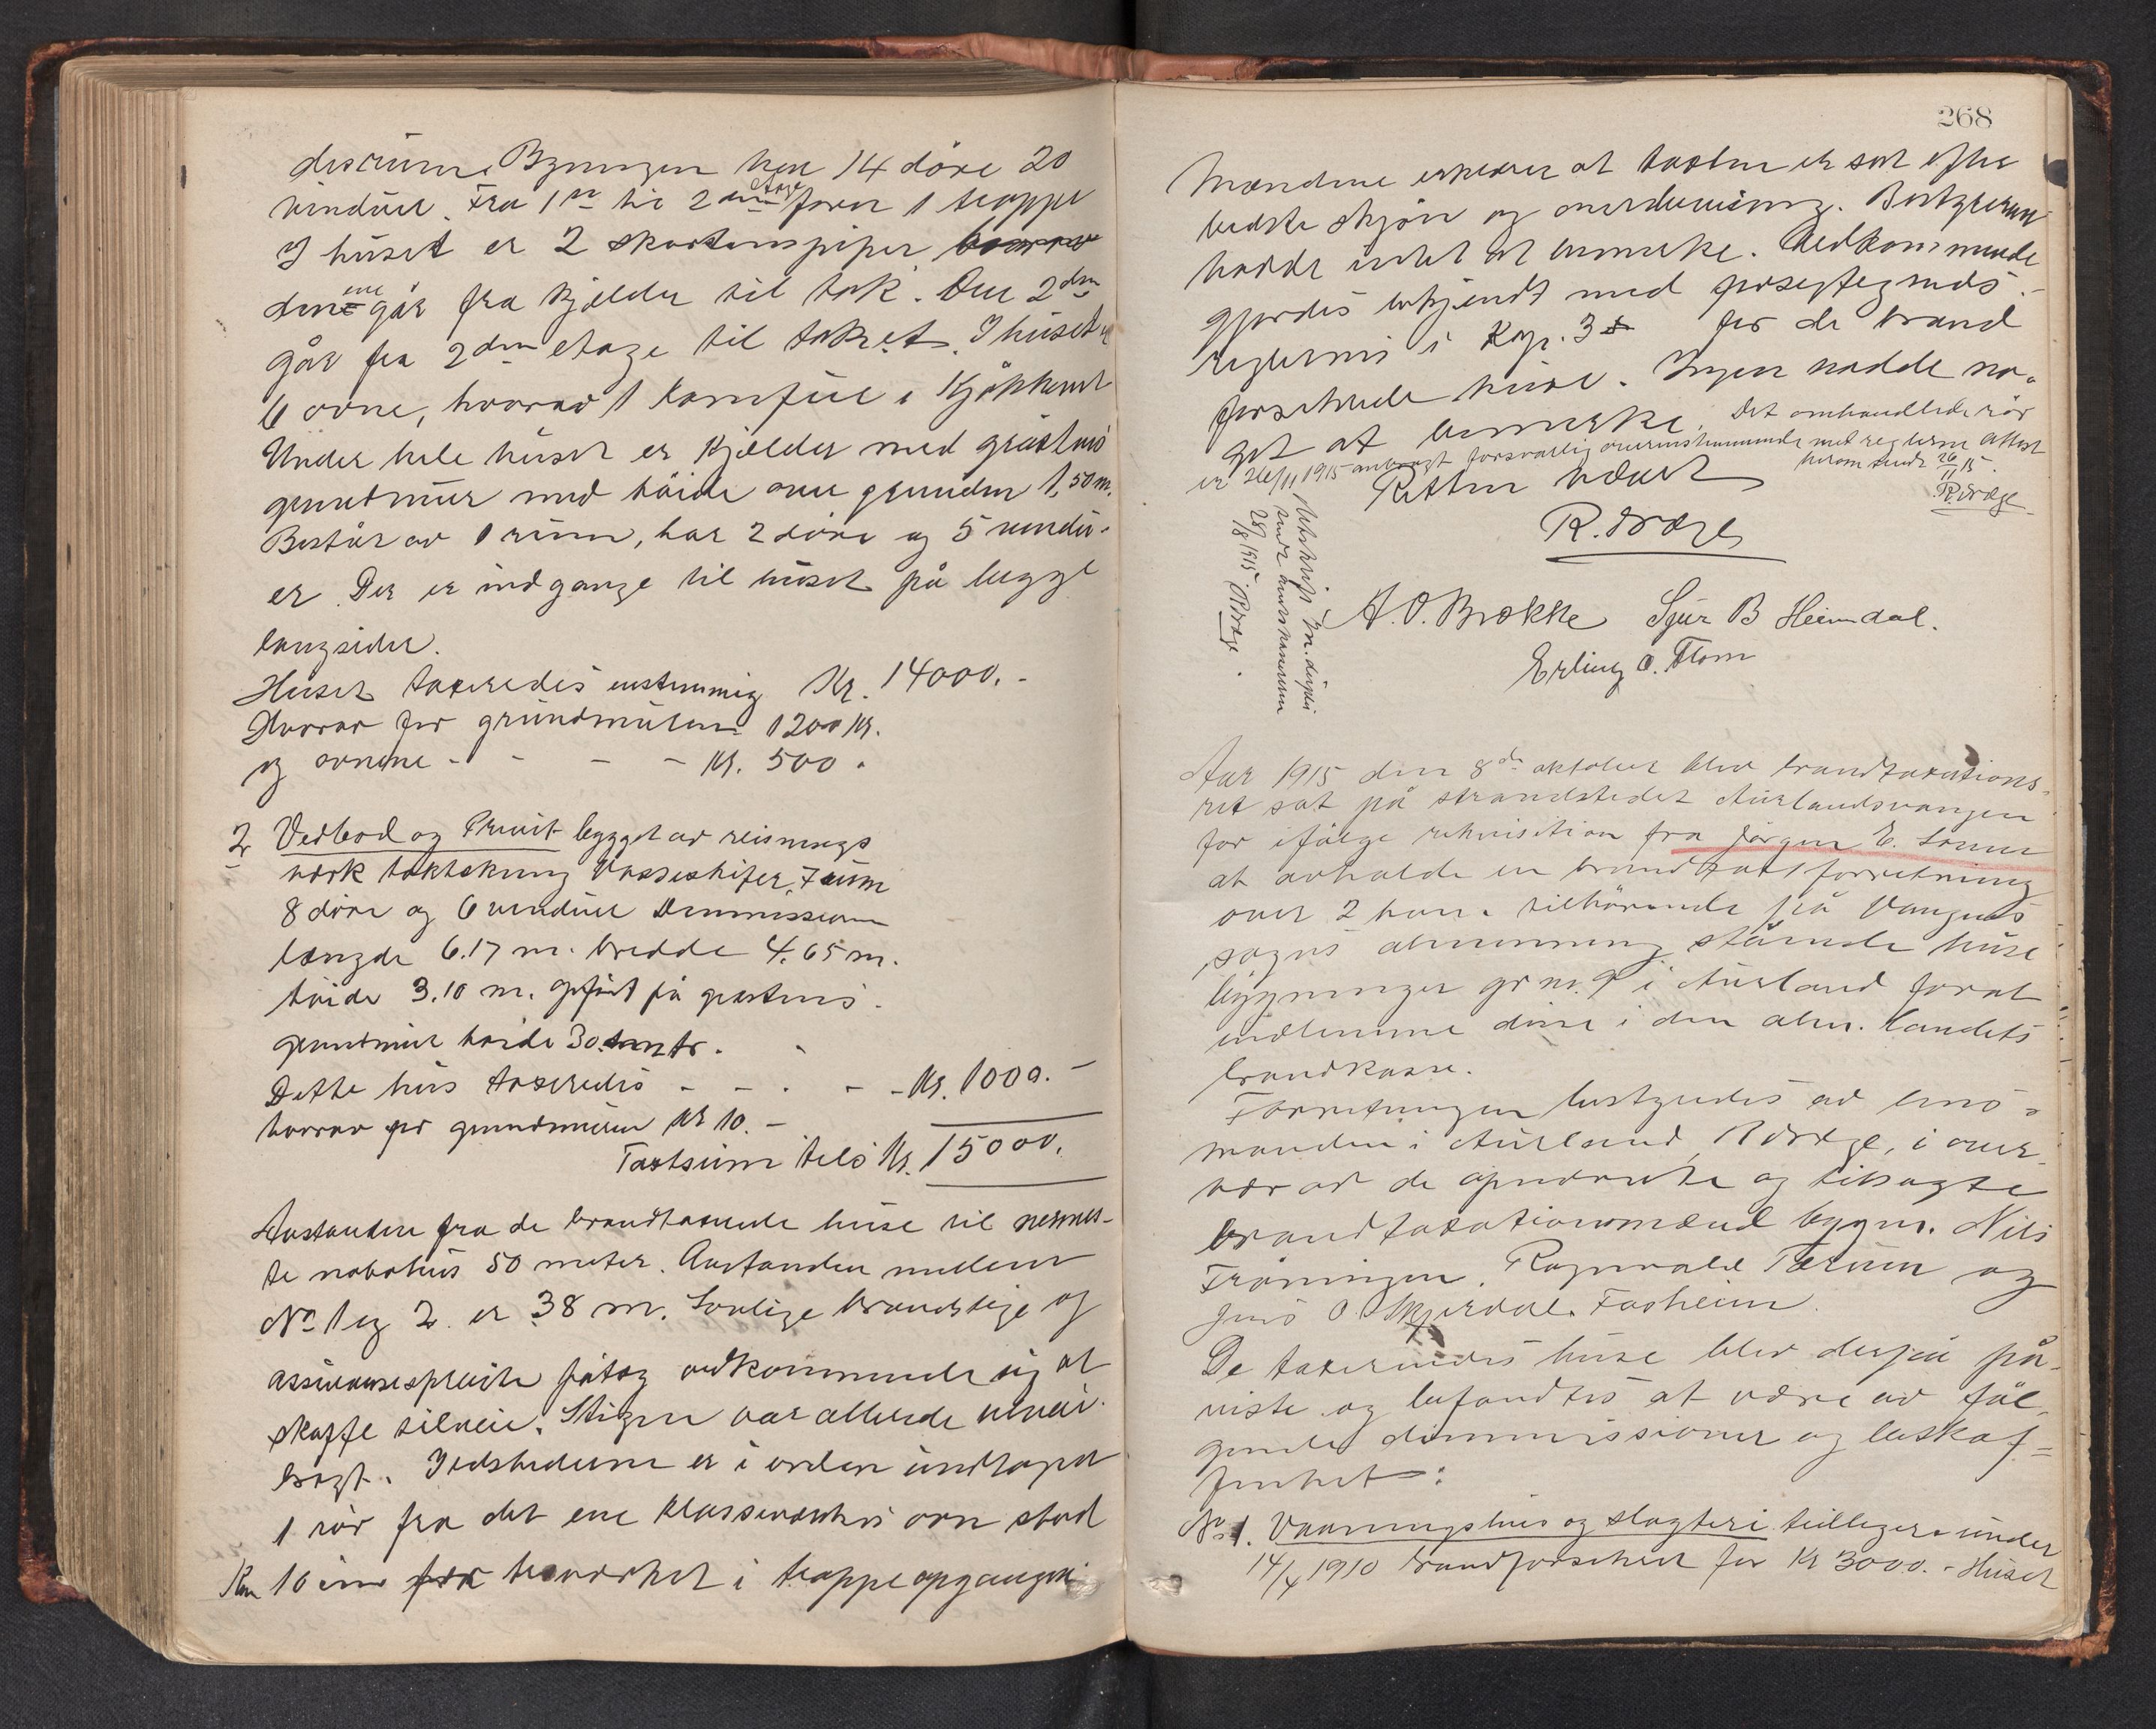 desrum. Bygningen har 14 döre 20
vinduer. Fra 1ste til 2den etage förer 1 trappe
I huset er 2 skorstenspiper
den ene går fra kjelder til tak. Den 2den
går fra 2den etage til taket. I huset er
6 ovne, hvorav 1 komfur i Kjökkenet
Under hele huset er kjelder med gråstens
grundmur med höide over grunden 1,50 m.
Består av 1 rum, har 2 döre og 5 vindu-
er. Der er indgange til huset på begge
langsider.
Huset taxeredes enstemmig Kr. 14000.-
Hvorav for grundmuren 1200 kr.
og ovnene - - - - Kr. 500.
2 Vedbod og Privet bygget av reisnings
verk taktekning Vosseskifer, 7 rum
8 döre og 6 vinduer Dimmissioner
længde 6.17 m. bredde 4.65 m.
höide 3.10 m. opfört på gråstens-
grundmur höide 30 cmtr.
Dette hus taxeredes - - - - Kr. 1000.-
hvorav for grundmuren kr 10.-
Taxtsum tils Kr. 15000.
Avstanden fra de brandtaxerede huse til nermes-
te nabohus 50 meter. Avstanden mellem
No 1 og 2 er 38 m. Lovlige brandstige og
assuransesprøite påtog vedkommende sig at
skaffe tilveie. Stigen var allerede tilveie-
bragt. Ildstederne er i orden undtagen
1 rör fra det ene klasseværelses ovn stod
kun 10 cm fra træverket i trappeopgangen
268
Mændene erklærer at taxten er sat efter
bedste skjön og overbevisning. Bestyreren
hadde intet at bemerke. Vedkommende
gjordes bekjendt med forsigtigheds-
reglerne i Kap. 3 for de brand
forsikrede huse. Ingen hadde no-
get at bemerke. Det omhandlede rör
er 26/11 1915 anbragt forsvarlig overensstemmende med reglerne Attest
herom sendt 26/11 15.
R. Dræge
Retten hævet
R. Dræge
Utskrift in duplo
sendt amtmanden
28/8 1915 R Dræge.
A. O. Brekke Sjur B Heimdal.
Erling O. Flom
Aar 1915 den 8de oktober blev brandtaxations-
ret sat på strandstedet Aurlandsvangen
for ifölge rekvisition fra Jörgen E.
at avholde en brandtaxtforretning
over 2 ham tilhörende på Vangens
sogns almenning stående huse
bygninger gr nr. 9 i Aurland forat
indlemme disse i den alm. landets
brandkasse.
Forretningen bestyredes av lens-
manden i Aurland, R Dræge, i over-
vær av de opnævnte og tilsagte
brandtaxationsmænd bygm. Nils
Fröningen. Ragnvald Tærum og
Jens O. Skjerdal Fasheim.
De taxerendes huse blev derpå på-
viste og befandtes at være av föl-
gende dimmissioner og beskaf-
fenhet:
No 1. Vaaningshus og slagteri tidligere under
14/4 1910 brandforsikret for Kr 3000.- Huset